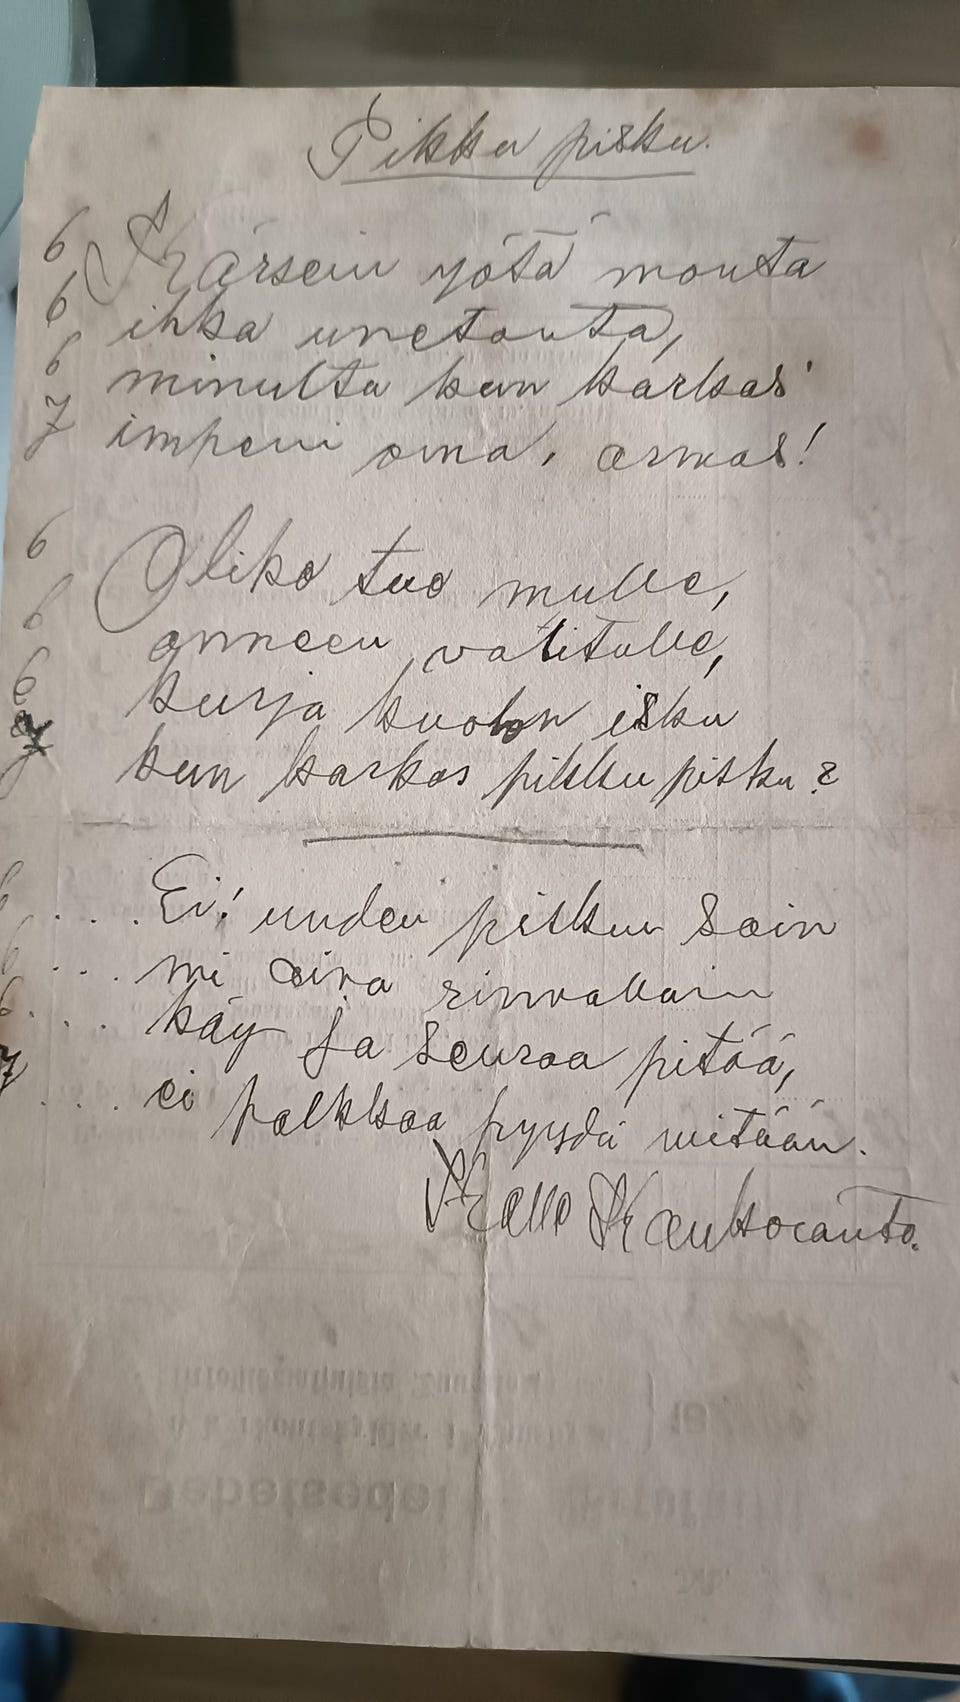 Pikku pisku.
6 Kärsein yötä monta
6 ihka unetonta,
6 minulta kun karkas'
7 impeni oma, armas!
6 Oliko tuo mulle,
6 onneen valitulle,
6 kurja kuolon isku
7 kun karkas pikku pisku?
6 ... Ei! uuden piskun sain
6 ... mi aina rinnallain
6 ... käy ja seuraa pitää,
7 ... ei palkkaa pyydä mitään.
Kalle Kaukoranta.
Debetsedel